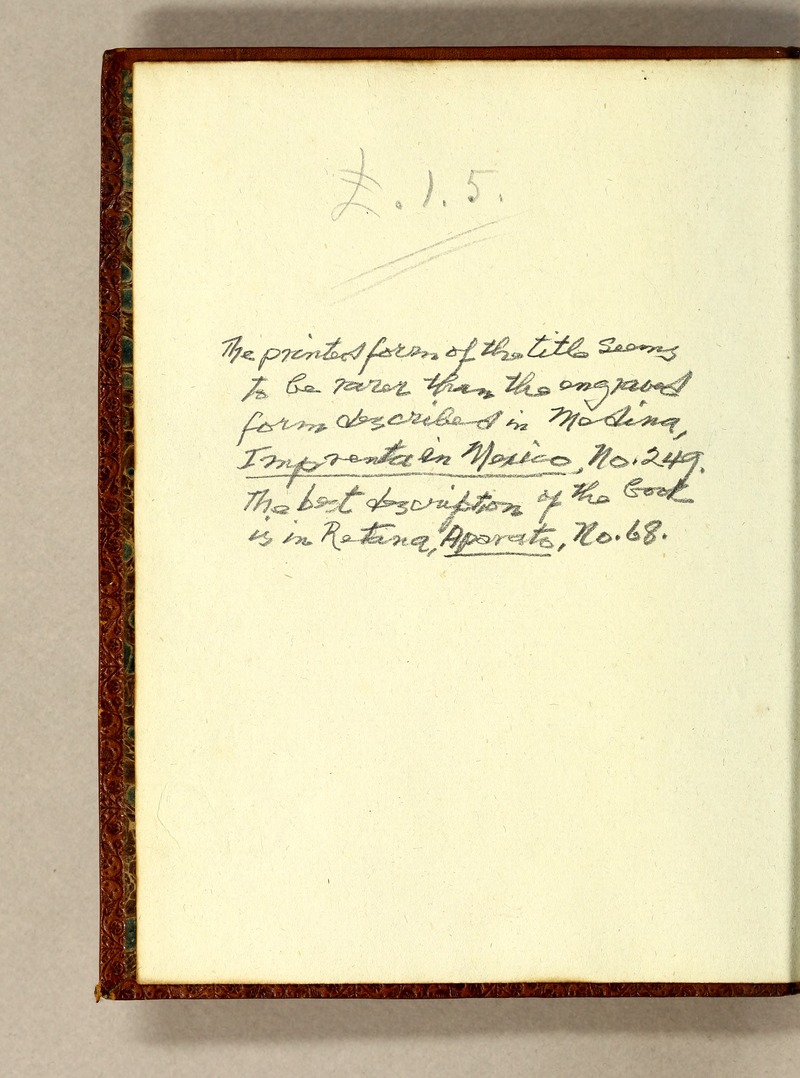 £.1.5.
The printed form of the title seems
to be rarer than the engraved
form described in Medina,
Imprenta en Mexico, No. 249.
The best description of the book
is in Retana, Aparato, No. 68.